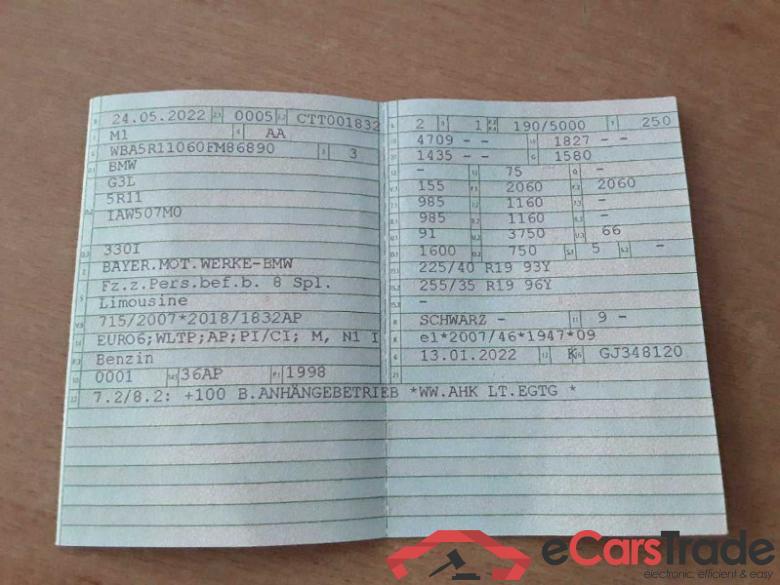 24.05.2022 0005 CTT001832
M1 AA
WBA5R11060FM86890 3
BMW
G3L
5R11
1AW507M0
330I
BAYER.MOT.WERKE-BMW
Fz.z.Pers.bef.b. 8 Spl.
Limousine
715/2007*2018/1832AP
EURO6;WLTP;AP;PI/CI; M, N1 I
Benzin
0001 36AP 1998
7.2/8.2: +100 B.ANHÄNGEBETRIEB *WW.AHK LT.EGTG *
2 1 190/5000 250
4709 - - 1827 - -
1435 - - 1580
- 75 -
155 2060 2060
985 1160 -
985 1160 -
91 3750 66
1600 750 5 -
225/40 R19 93Y
255/35 R19 96Y
-
SCHWARZ - 9 -
e1*2007/46*1947*09
13.01.2022 K GJ348120
eCarsTrade
electronic, efficient & easy